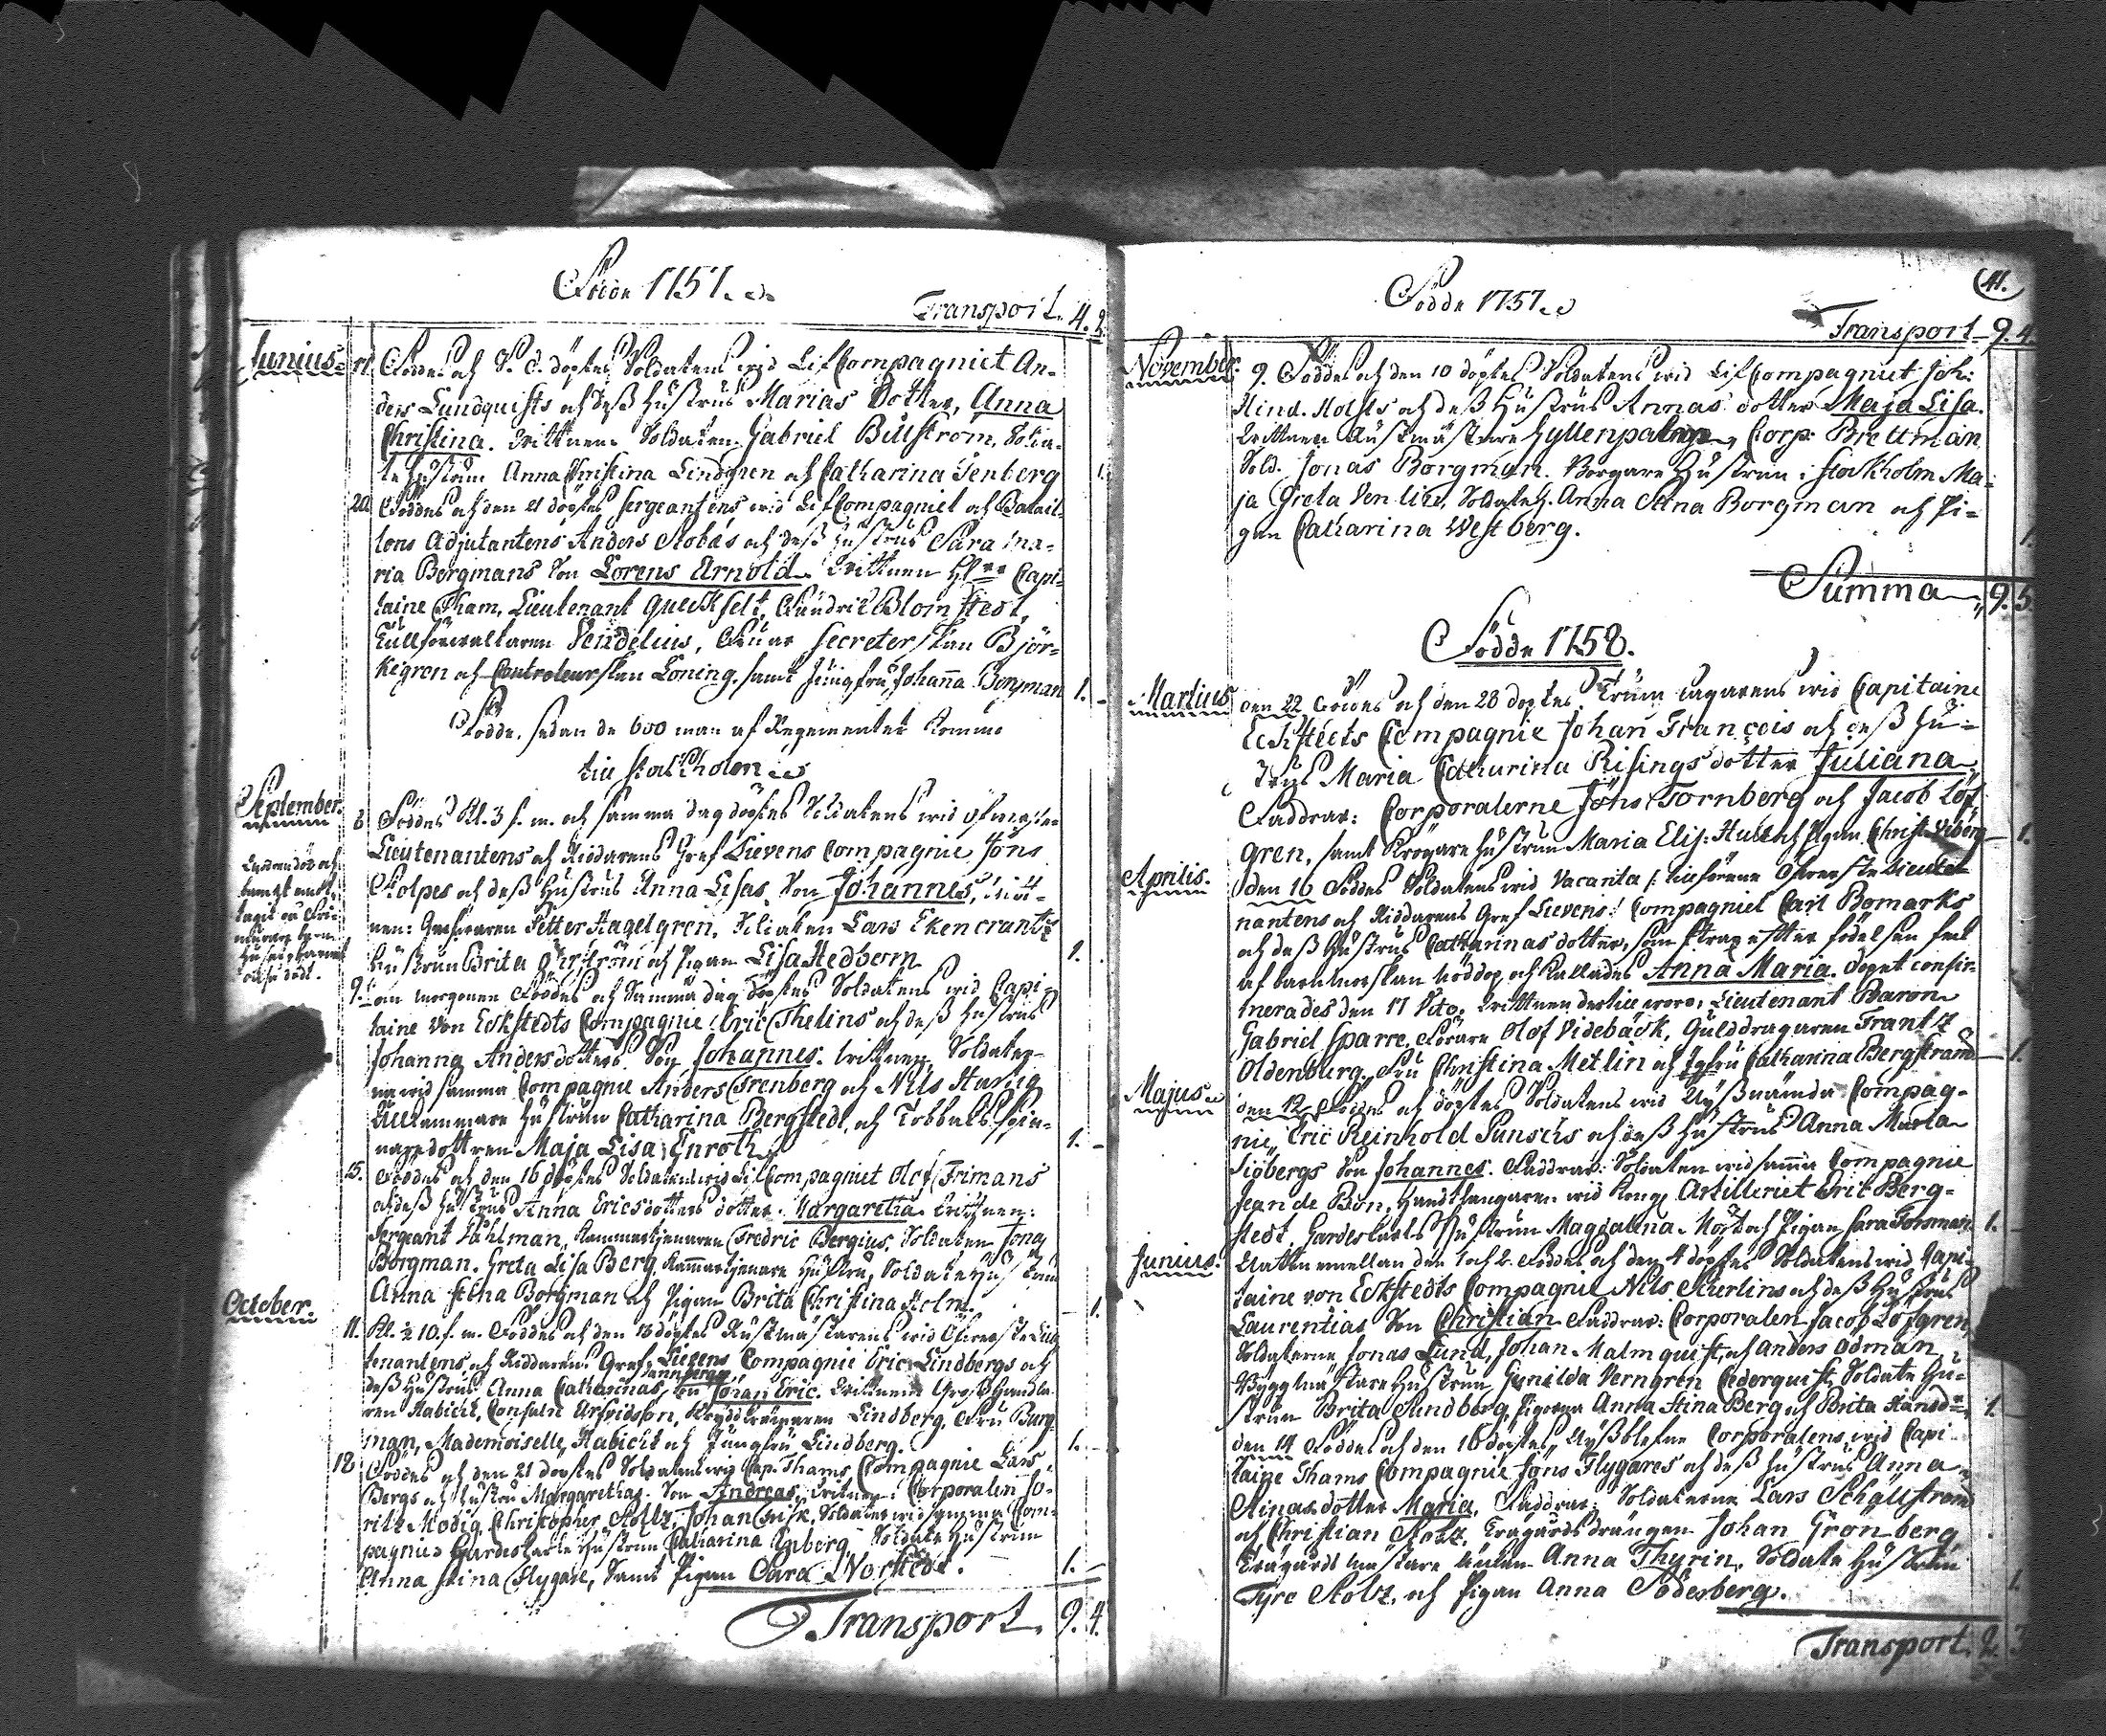 Födde 1757.
Transport. 4. 2.
Junius. 17. Föddes och S. d. döptes Soldatens wid Lif Compagniet An-
ders Lundquists och desz hustrus Marias dotter, Anna
Christina. Wittnen: Soldaten Gabriel Billström, Solda-
te hustrun Anna Christina Lindgren och Catharina Tenberg 1.
20. Föddes och den 21 döptes Sergeantens wid Lif Compagniet och Batail-
lons Adjutantens Anders Stobæs och desz hustrus Sara Ma-
ria Bergmans Son Lorens Arnold. Wittnen H:rr Capi-
taine Tham, Lieutenant Queckfelt, Blomstedt,
Tullförwaltaren Vendelius, Fruar Secreterskan Björ-
kegren och Controleurskan Löning, samt Jungfru Johanna Bergman 1. -
Födde, sedan de 600 man af Regementet kommo
till Stockholm
September. 8. Föddes Kl. 3 f. m. och samma dag döptes Soldatens wid Öfwerste
Lieutenantens och Riddarens Gref Lievens Compagnie Jöns
Stolpes och desz hustrus Anna Lisas, Son Johannes, Witt-
nen: Petter Hagelgren, Soldaten Lars Ekencrantz
hustrun Brita och Pigan Lisa Hedbom 1.
9. om morgonen Föddes och Samma dag döptes Soldatens wid Capi-
taine von Eckstedts Compagnie Eric Thelins och desz hustrus
Johanna Andersdotters Son Johannes. Wittnen Soldater-
na wid samma Compagnie Anders Trenberg och Nils Hartig
hustrun Catharina Bergstedt, och Tobbaks spin-
naredottren Maja Lisa Enroth. 1. -
15. Föddes och den 16 döptes Soldatens wid Lif Compagniet Olof Frimans
och desz hustrus Anna Ericsdotters dotter Margaretha. Wittnen:
Sergeant Påhlman, Kammartjenaren Fredric Bergius, Soldaten Jonas
Borgman, Greta Lisa Berg, Kammartjenare hustru, Soldate hustrun
Anna Stina Borgman och Pigan Brita Christina Holm. - 1.
October. 11. Kl. ½ 10. f. m. Föddes och den 13 döptes Rustmästarens wid Öfwerste Lieu-
tenantens och Riddarens Gref Lievens Compagnie Eric Lindbergs och
desz hustrus Anna Catharinas, Son Johan Eric. Wittnen: Grosshandla-
ren Habicht, Consuln Arfvidsson, Kryddkrämaren Lindberg, Fru Burg-
man, Mademoiselle Habicht och Jungfru Lindberg. 1. -
18. Föddes och den 21 döptes Soldatens wid Cap. Thams Compagnie Lars
Bergs och hustru Margarethas Son Andreas. Wittnen: Corporalen
Modig, Christopher Stoltz, Johan Frisk, Soldater wid samma Com-
pagnie, Gardeskarls hustrun Catharina Enberg, Soldate hustrun
Anna Stina Flygare, Samt Pigan Sara Norstedt. 1. -
Transport. 9. 4.
41.
Födde 1757.
Transport 9. 4.
November. 9. Föddes och den 10 döptes Soldatens wid Lif Compagniet Joh:
Hind. Holsts och desz hustrus Annas dotter Maja Lisa.
Wittnen Rustmästare Gyllenpalm, Corp: Brettman,
Sold. Jonas Borgman. Borgare Hustrun i Stockholm Ma-
ja Greta, Soldateh. Anna Stina Borgman och Pi-
gan Catharina Westberg. 1.
Summa 9. 5.
Födde 1758.
Martius den 22 Föddes och den 23 döptes Trumslagarens wid Capitaine
Eckstedts Compagnie Johan François och desz hu-
strus Maria Catharina Risings dotter Juliana.
Faddrar: Corporalerne Jöns Tornberg och Jacob Löf-
gren, samt Krögare hustrun Maria Elis: och Pigan Christ. Viberg 1.
Aprilis. den 16 Föddes Soldatens wid Vacanta /: tillförene Öfwerste Lieute-
nantens och Riddarens Gref Lievens :/ Compagniet Carl Bomarks
och desz hustrus Catharinas dotter, som strax efter födelsen fick
af barnmorskan nöddop, och kallades Anna Maria. dopet confir-
merades den 17 dito. Wittnen dertill woro: Lieutenant Baron
Gabriel Sparre, Olof Videbäck, Gulddragaren Frantz
Oldenburg, Fru Christina Metlin och Jgfru Catharina Bergstrand 1.
Majus. den 12 Föddes och döptes Soldatens wid nysznämnda Compag-
nie, Eric Reinhold Punschs och desz hustrus Anna Maria
Siöbergs Son Johannes. Faddrar: Soldaten wid samma Compagnie
Jean de Bon, Handtlangaren wid Kongl. Artilleriet Eric Berg-
stedt, Gardeskarls hustrun Magdalena och Pigan Sara Forsman 1. -
Junius. Natten emellan den 1 och 2 Föddes och den 4 döptes Soldatens wid Capi-
taine von Eckstedts Compagnie Nils Kierlins och desz hustrus
Laurentias Son Christian. Faddrar: Corporalen Jacob Löfgren,
Soldaterne Jonas Lund, Johan Malmquist, och Anders Ödman,
Byggmästare hustrun Gunilda Verngren Cederquist, Soldate hu-
strun Brita Sundberg, Pigorna Anna Stina Berg och Brita Hansd:r 1. -
den 14 Föddes och den 16 döptes nyszblefne Corporalens wid Capi-
taine Thams Compagnie Jöns Flygares och desz hustrus Anna
Stinas dotter Maria. Faddrar: Soldaterne Lars Schällström
och Christian Stoltz, Trägårdsdrängen Johan Grönberg
Trägårdsmästare Anna Thyrin, Soldate hustrun
Tyre Stolz, och Pigan Anna Söderberg. 1.
Transport. 2. 3